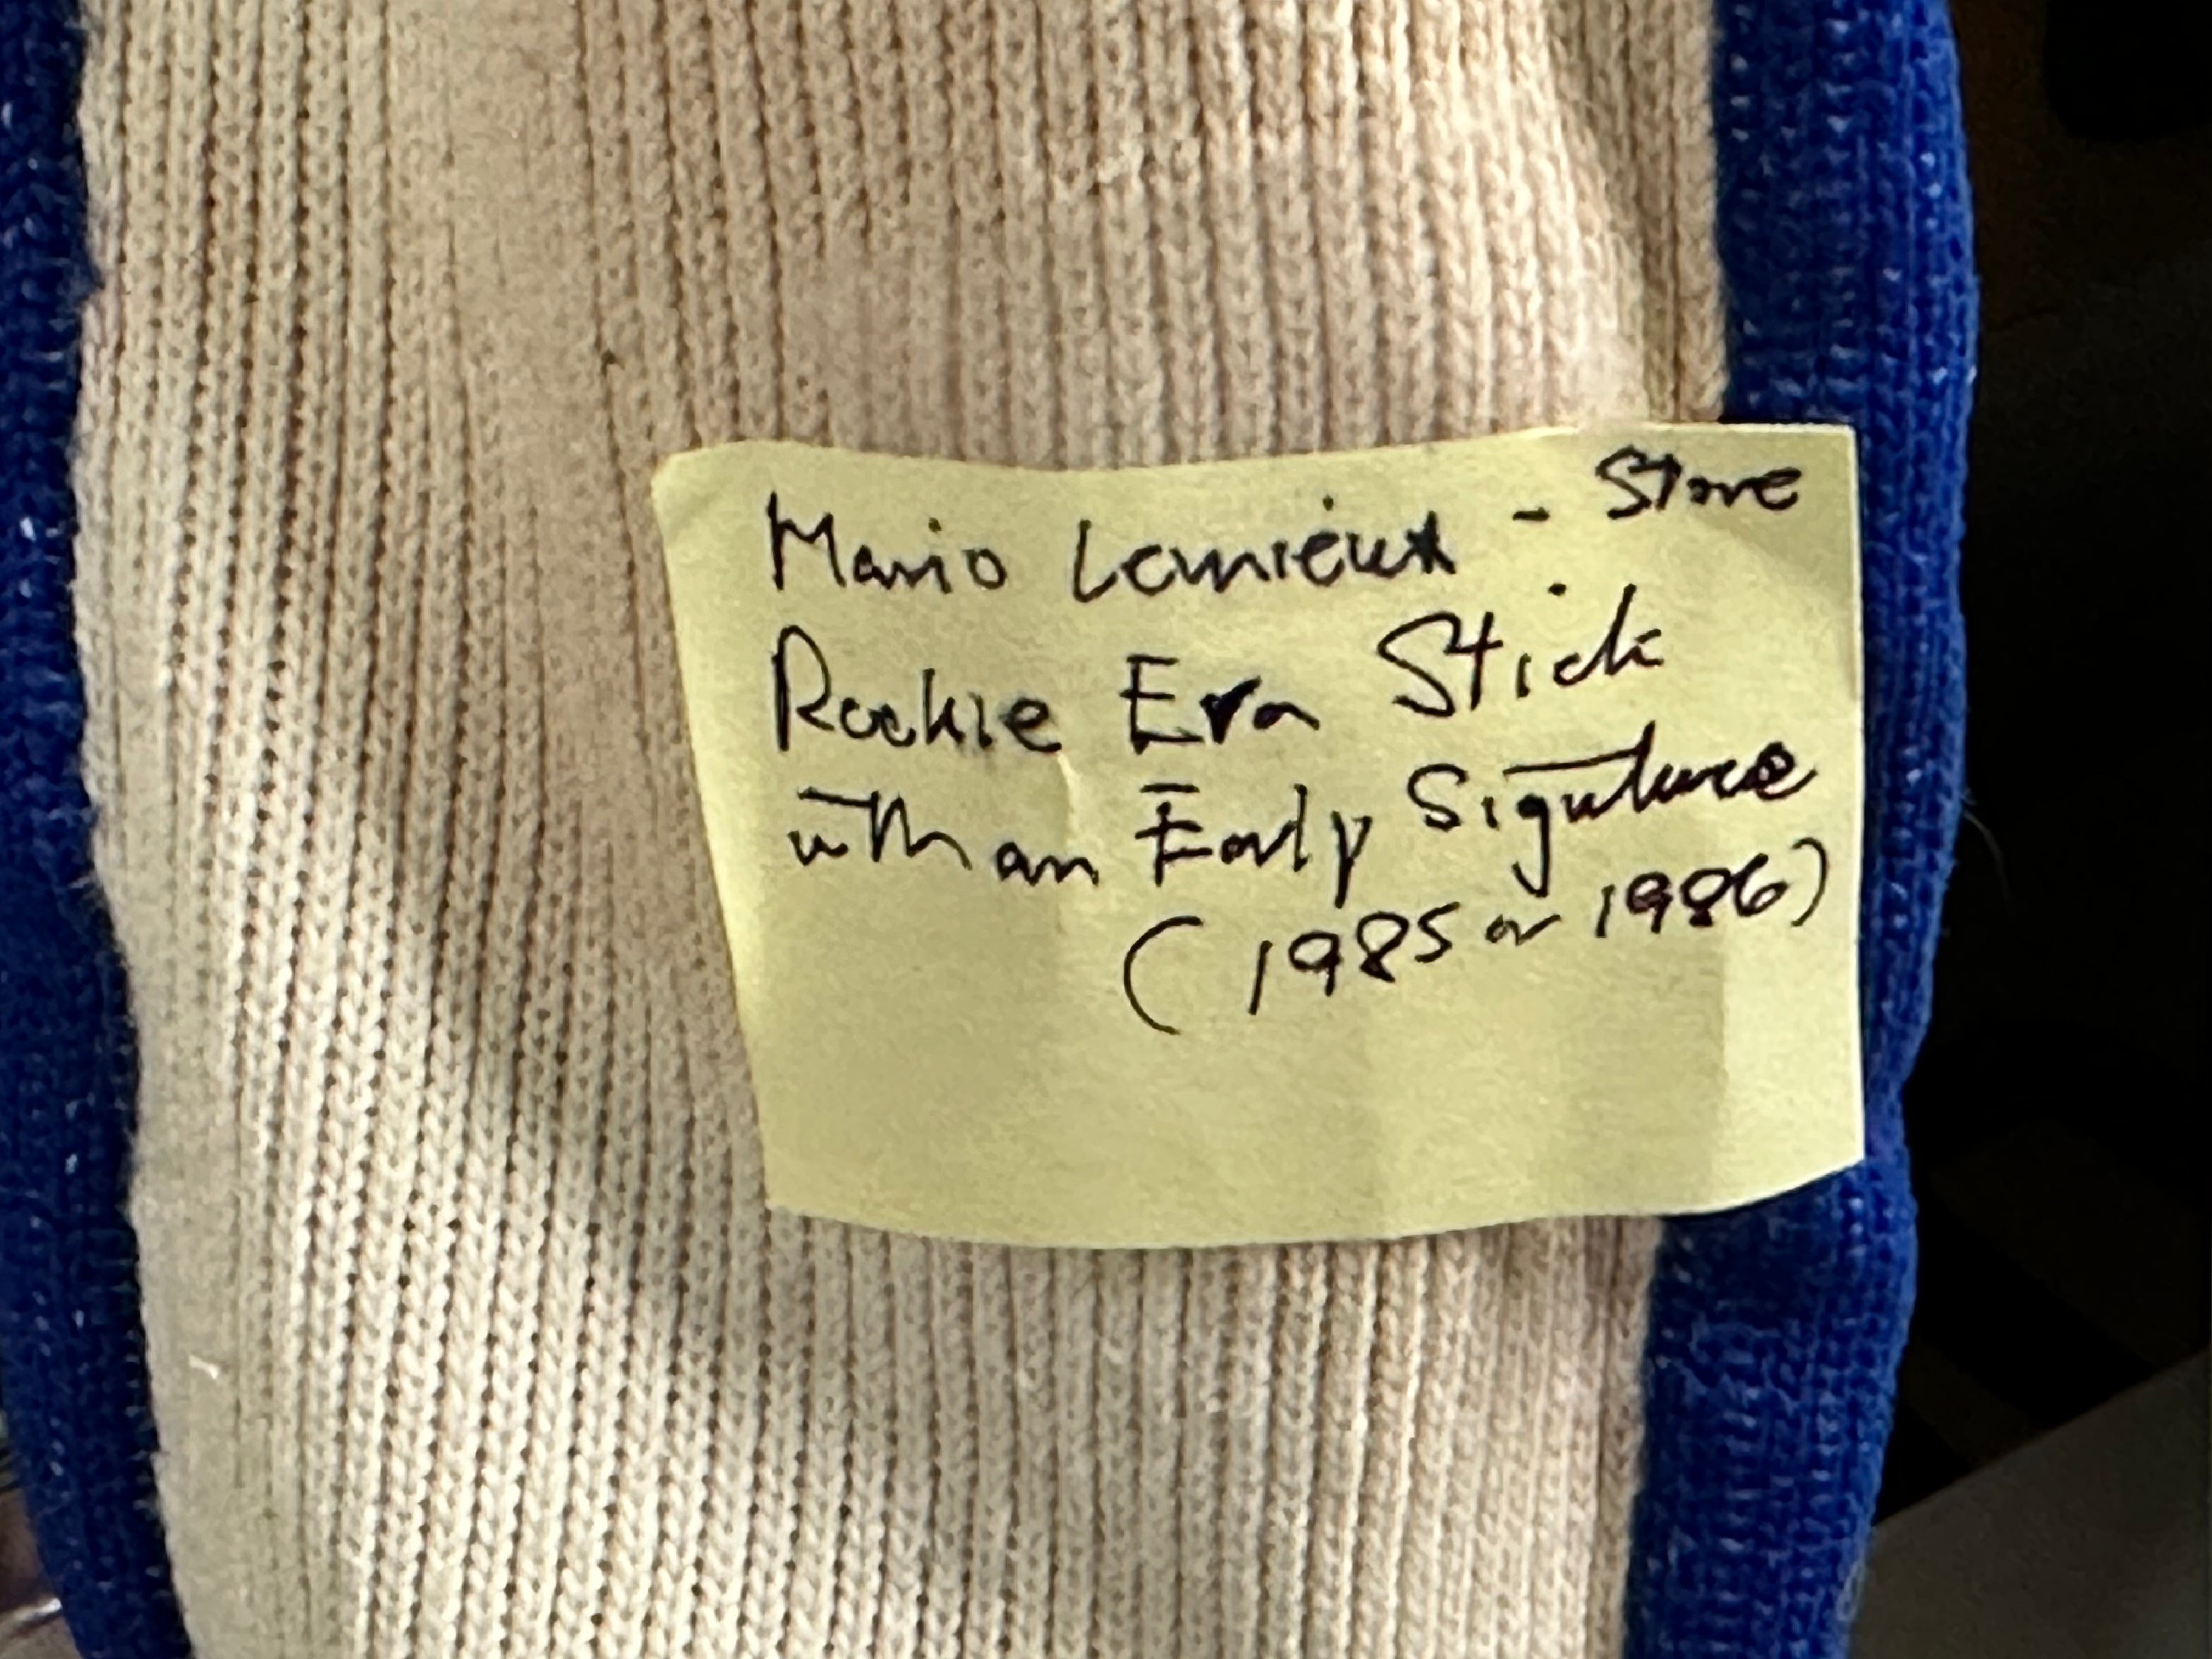 Mario Lemieux - Store
Rookie Era Stick
with an Early Signature
(1985 or 1986)